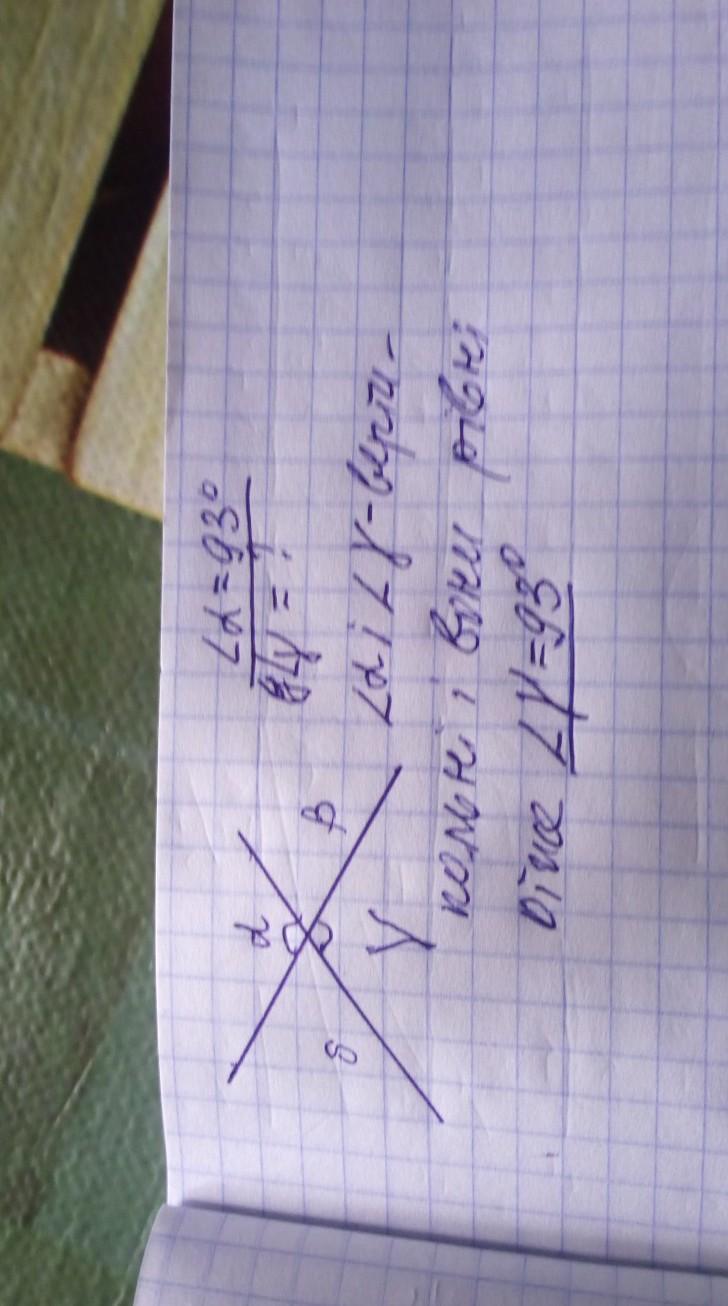 ∠α=93°
∠γ=?
α
β
γ
δ
∠α і ∠γ-верти-
кальні і вони рівні
Отже ∠γ=93°